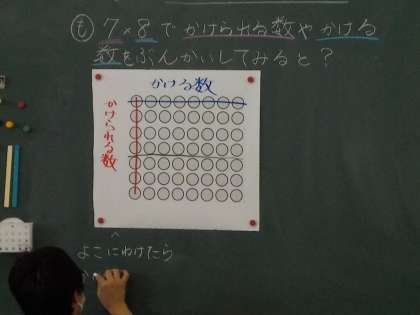 も 7×8でかけられる数やかける
数をぶんかいしてみると?
かける数
かけられる数
よこにわけたら